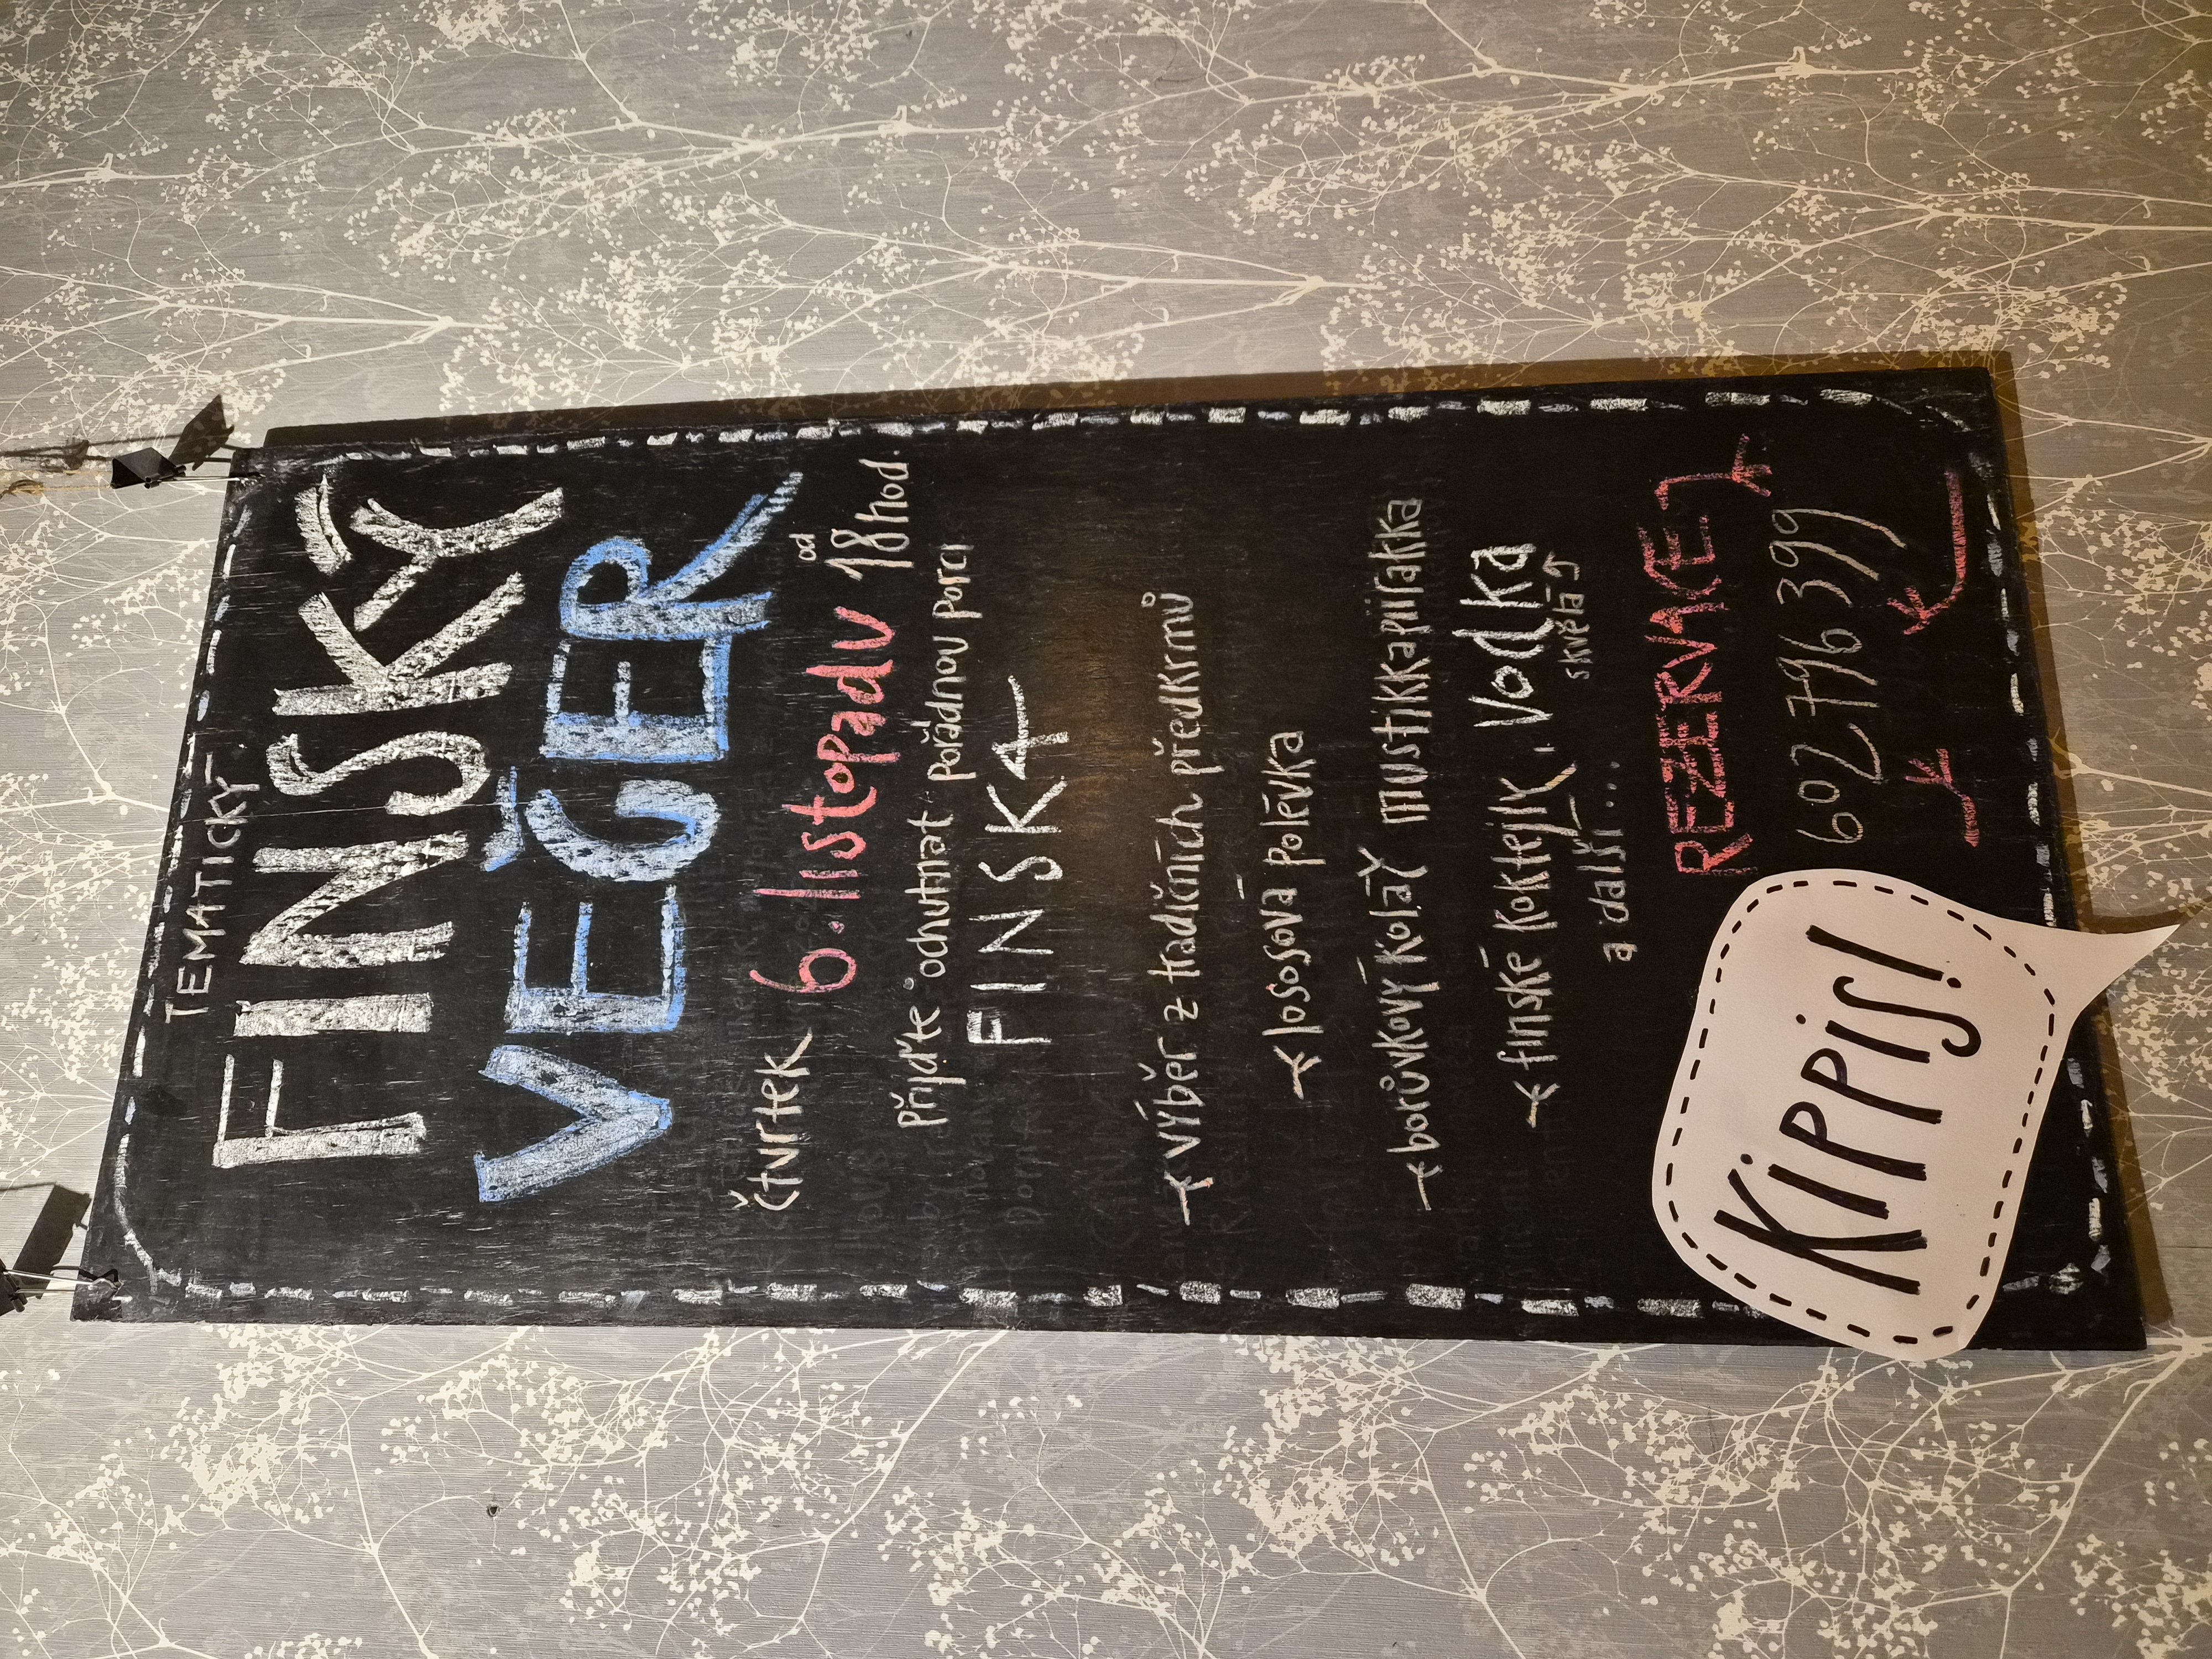 TEMATICKÝ
FINSKÝ
VEČER
čtvrtek 6. listopadu od 18 hod.
Přijďte ochutnat pořádnou porci
FINSKA
výběr z tradičních předkrmů
lososová polévka
borůvkový koláč mustikkapiirakka
finské koktejly, vodka
skvělá
a další...
REZERVACE
602 796 399
KiPPiS!